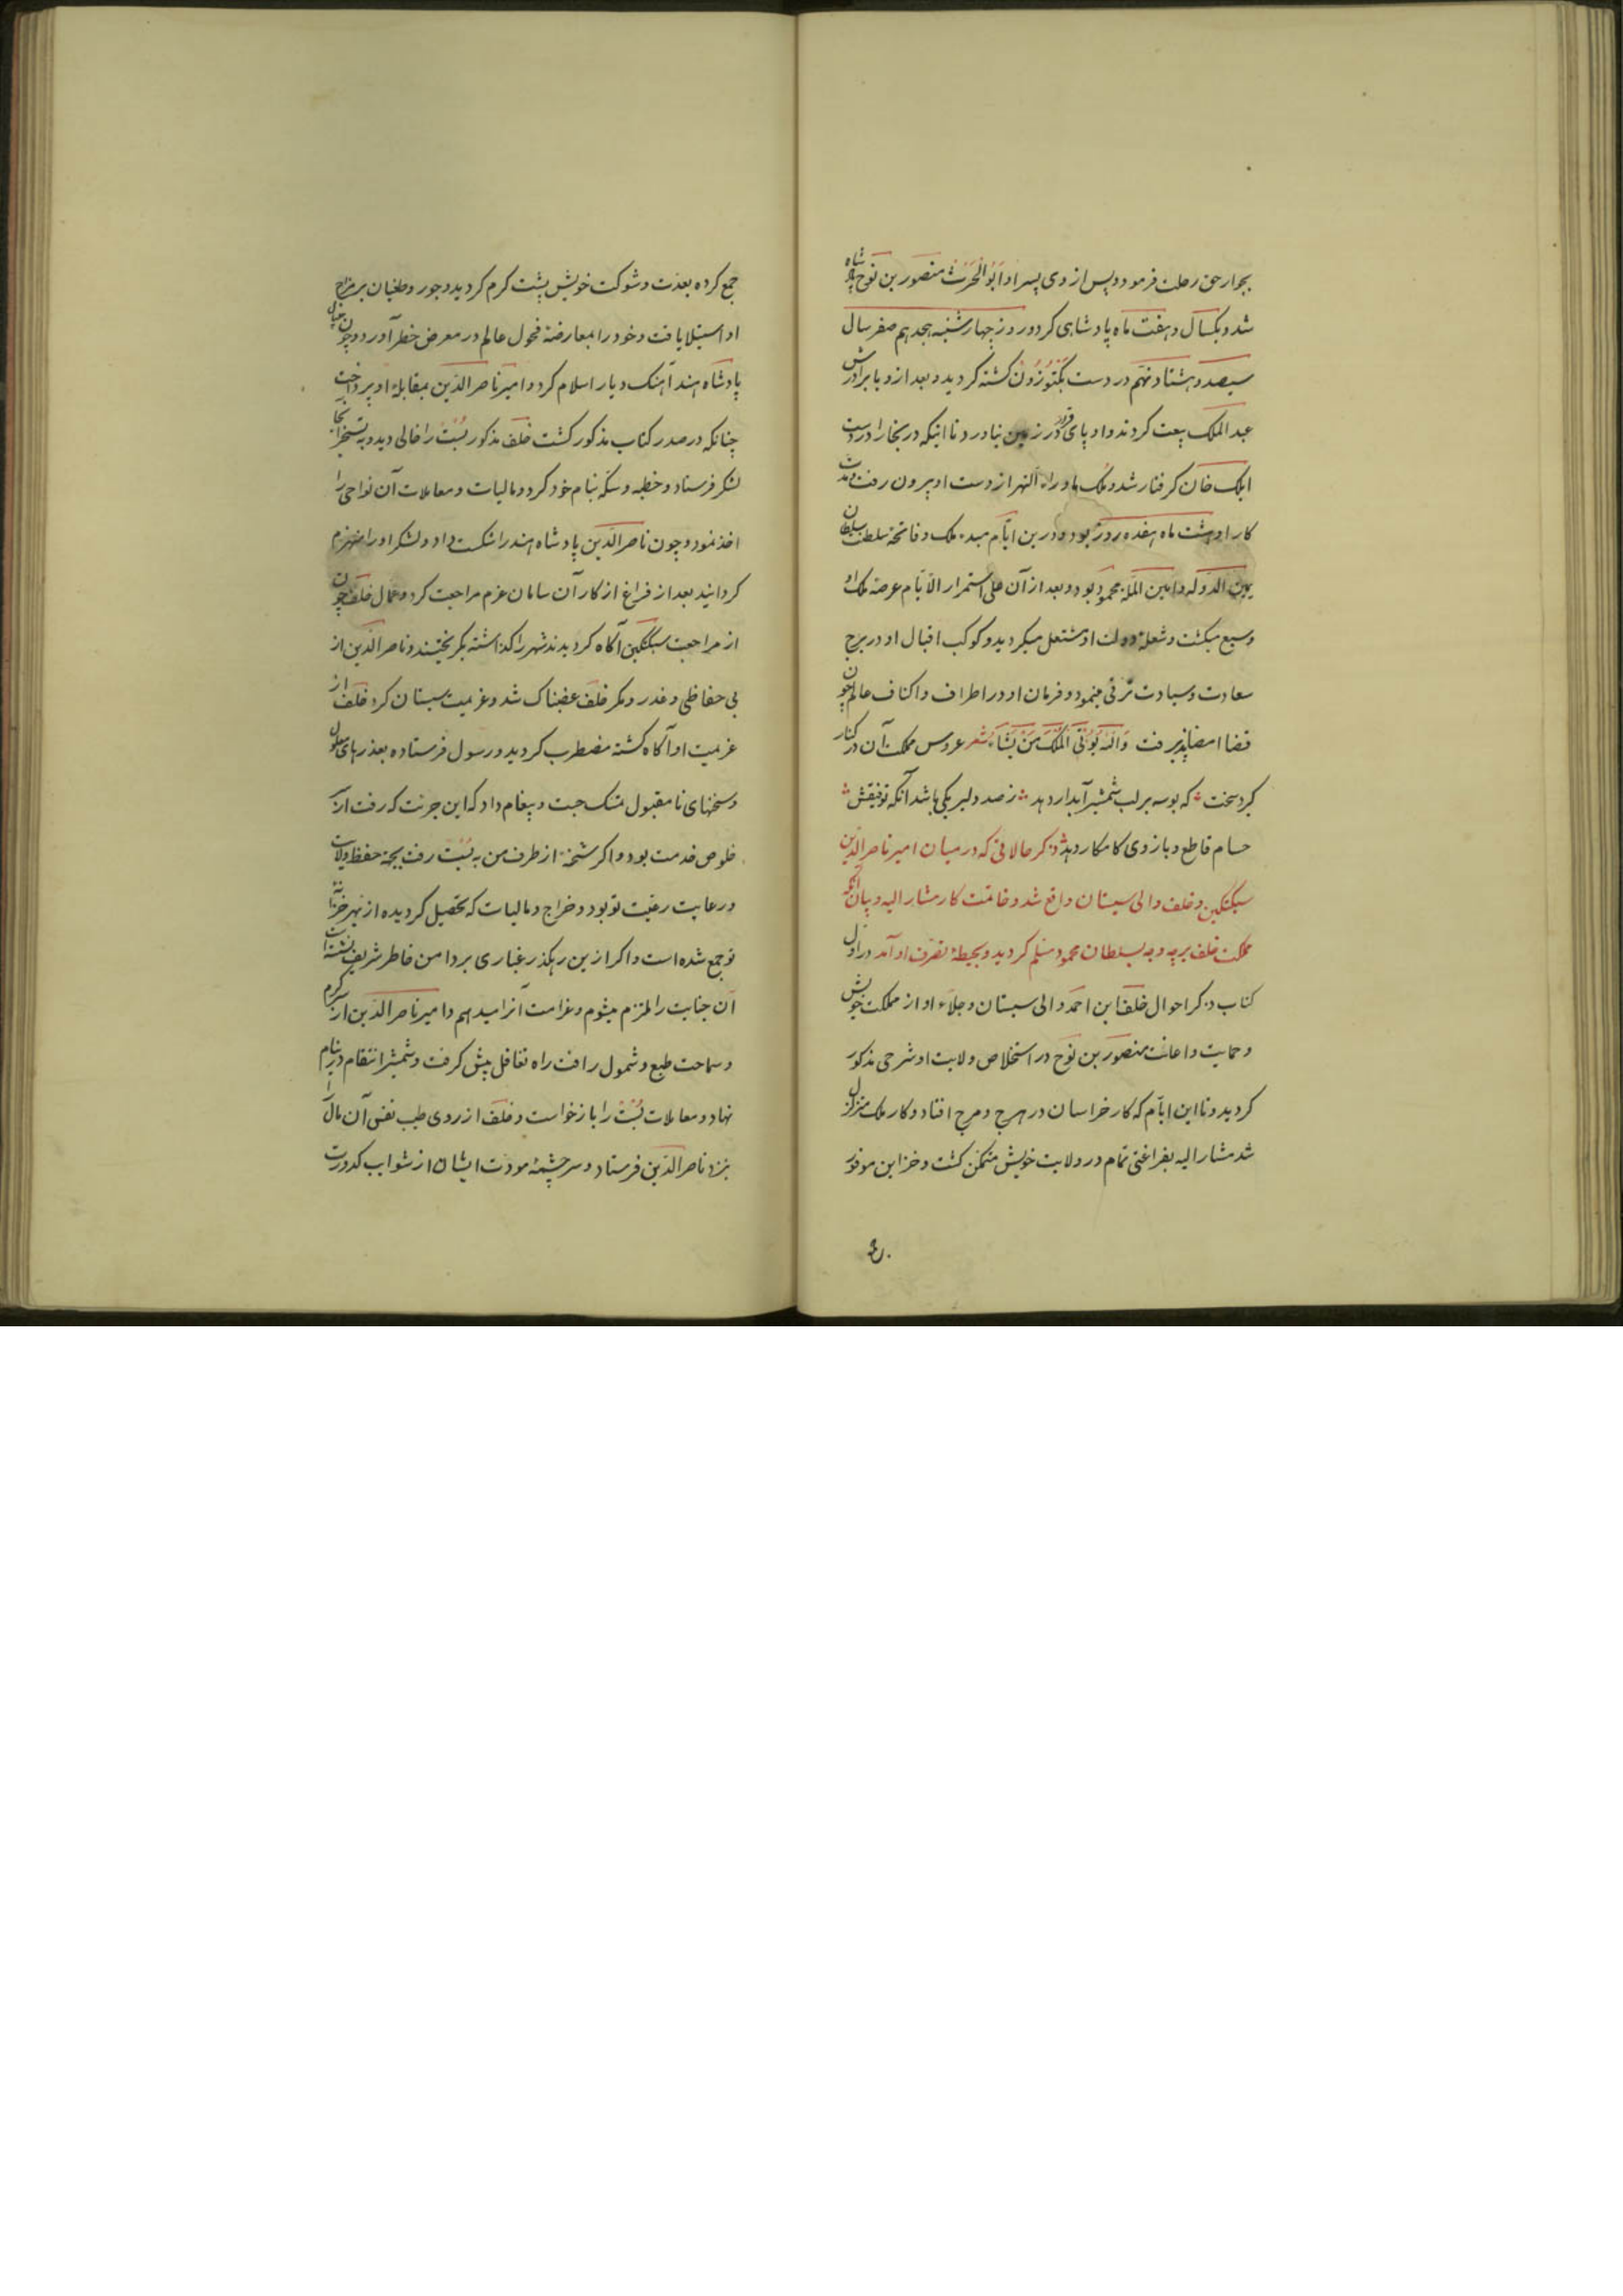 بجوار حق رحلت فرمود و پس از وی پسر او ابو الحرث منصور بن نوح پادشاه
شد و یکسال و هفت ماه پادشاهی کرد و روز چهارشنبه هجدهم صفر سال
سیصد و هشتاد و نهم در دست بکتوزون کشته کردید و بعد ازو با برادرش
عبد الملک بیعت کردند و او پای قرار در زمین نیاورد تا اینکه در بخارا در دست
ایلک خان کرفتار شد و ملک ماوراء النهر از دست او بیرون رفت و مدت
کار او هشت ماه هفده روز بود و درین ایام مبدء ملک و فاتحهٔ سلطنت سلطان
یمین الدوله و امین المله محمود بود و بعد از آن علی استمرار الایام عرصهٔ ملک او
وسیع میکشت و شعلهٔ دولت او مشتعل میکردید و کوکب اقبال او در برج
سعادت و سیادت ترقی مینمود و فرمان او در اطراف و اکناف عالم چون
قضا امضا پذیرفت والله یؤتی الملک من یشاء شعر عروس مملکت آن در کنار
کیرد سخت که بوسه بر لب شمشیر آبدار دهد ز صد دلیر یکی باشد آنکه توفیقش
حسام قاطع و بازوی کامکار دهد ذکر حالاتی که در میان امیر ناصر الدین
سبکتکین و خلف والی سیستان واقع شد و خاتمت کار مشار الیه و بیان آنکه
مملکت خلف بر چه وجه بسلطان محمود مسلم کردید و بحیطهٔ تصرف او آمد در اول
کتاب ذکر احوال خلف ابن احمد والی سیستان و جلاء او از مملکت خویش
و حمایت و اعانت منصور بن نوح در استخلاص ولایت او شرحی مذکور
کردید و تا این ایام که کار خراسان در هرج و مرج افتاد و کار ملک متزلزل
شد مشار الیه بفراغتی تمام در ولایت خویش متمکن کشت و خزاین موفور
جمع کرده بعدت و شوکت خویش پشت کرم کردید و جور و طغیان بر مزاج
او استیلا یافت و خود را بمعارضهٔ فحول عالم در معرض خطر آورد و چون جیپال
پادشاه هند آهنک دیار اسلام کرد و امیر ناصر الدین بمقابلهٔ او پرداخت
چنانکه در صدر کتاب مذکور کشت خلف مذکور بست را خالی دید و به تسخیر آنجا
لشکر فرستاد و خطبه و سکه بنام خود کرد و مالیات و معاملات آن نواحی را
اخذ نمود و چون ناصر الدین پادشاه هند را شکست داد و لشکر او را منهزم
کردانید بعد از فراغ از کار آن سامان عزم مراجعت کرد و عمال خلف چون
از مراجعت سبکتکین آکاه کردیدند شهر را کذاشته بکریختند و ناصر الدین از
بی حفاظی و غدر و مکر خلف غضبناک شد و عزیمت سیستان کرد خلف از
عزیمت او آکاه کشته مضطرب کردید و رسول فرستاده بعذرهای معلول
و سخنهای نامقبول تمسک جست و پیغام داد که این جرئت که رفت از راه
خلوص خدمت بود و اکر شخنهٔ از طرف من به بست رفت بجهة حفظ ولایت
و رعایت رعیت تو بود و خراج و مالیات که تحصیل کردیده از بهر خزانهٔ
تو جمع شده است و اکر ازین رهکذر غباری بر دامن خاطر شریف نشسته است
آن جنایت را ملتزم میشوم و غرامت آنرا میدهم و امیر ناصر الدین از کرم
و سماحت طبع و شمول رافت راه تغافل پیش کرفت و شمشیر انتقام در نیام
نهاد و معاملات بست را بازخواست و خلف از روی طیب نفس آن مال را
بنزد ناصر الدین فرستاد و سر چشمهٔ مودت ایشان از شوایب کدورت